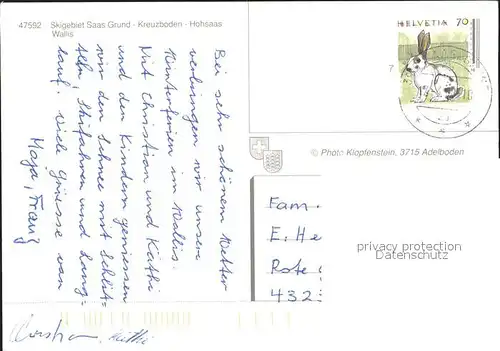 47592 Skigebiet Saas Grund - Kreuzboden - Hohsaas
Wallis
HELVETIA 70
7
Bei sehr schönem Wetter
verbringen wir unsere
Winterferien im Wallis.
Mit Christian und Käthi
und den Kindern geniessen
wir den Schnee mit Schlit=
teln, Skifahren und Lang=
lauf. Viele Grüsse von
Maja, Franz
Käthi
© Photo Klopfenstein, 3715 Adelboden
Fam.
E. He
Rote
432
privacy protection
Datenschutz